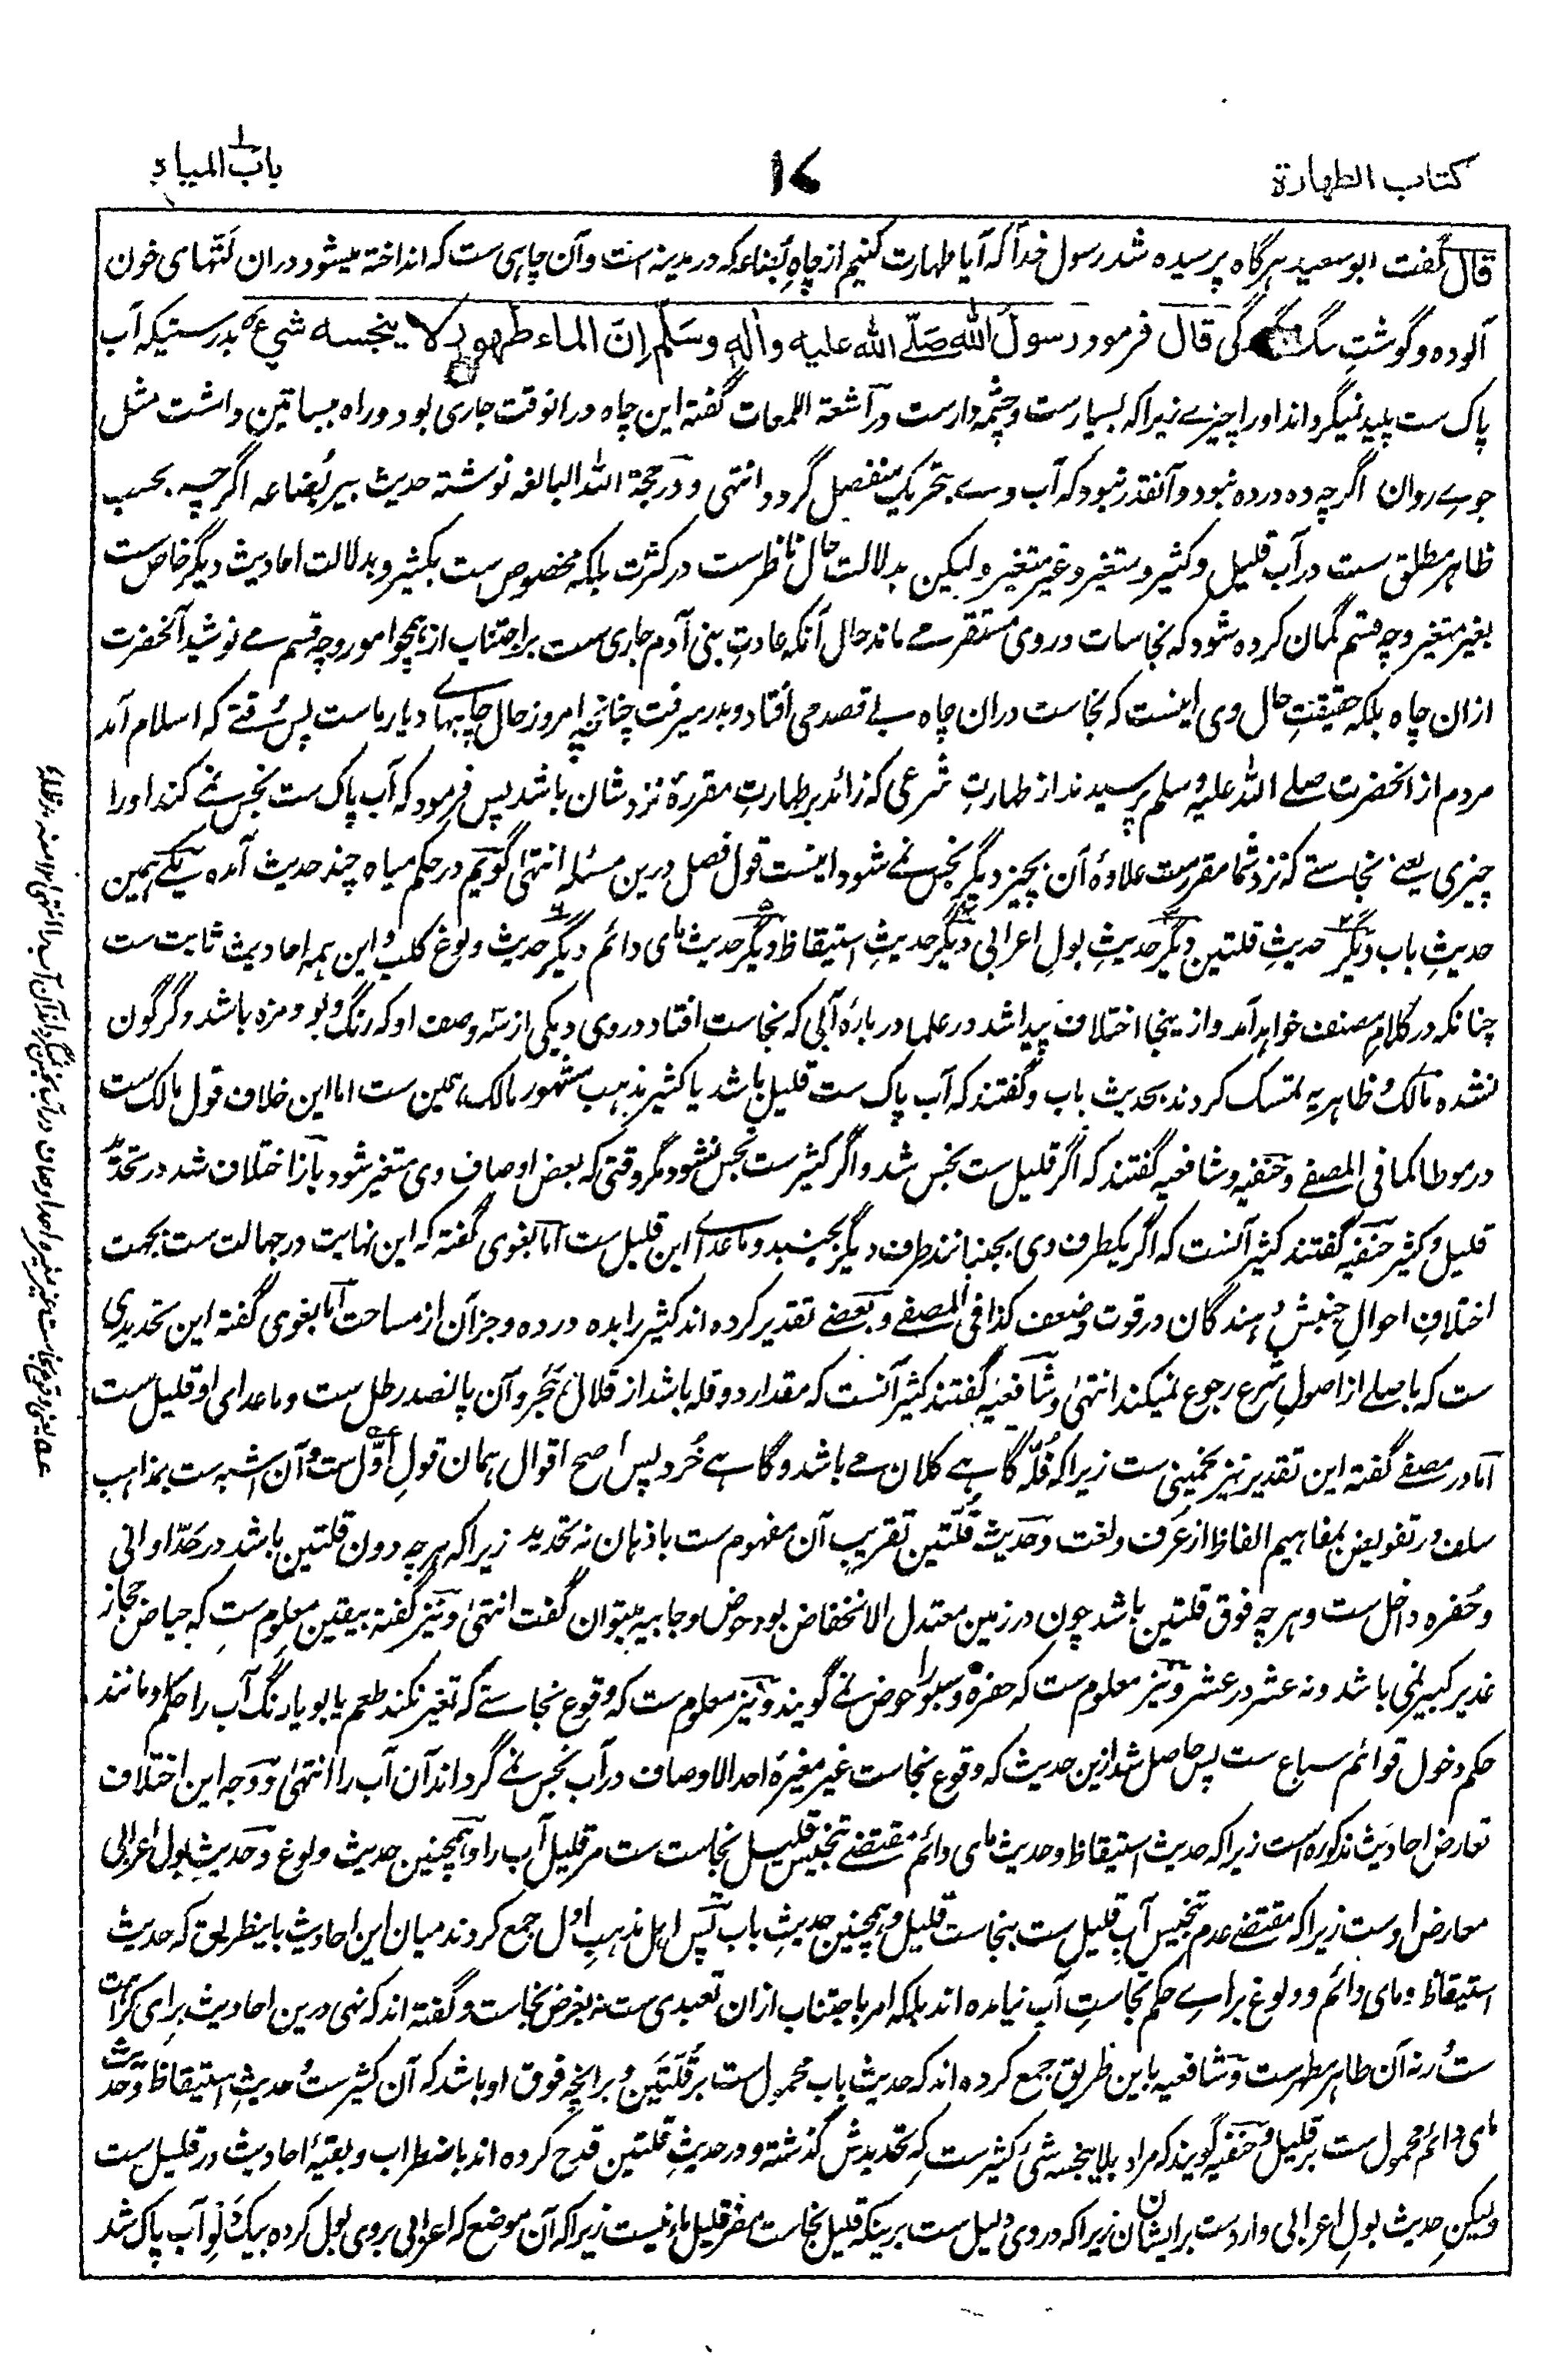 کتاب الطهارة
۱۷
باب المیاه
قال گفت ابو سعید هرگاه پرسیده شد رسول خدا که آیا طهارت کنیم از چاهِ بُضاعه که در مدینه است و آن چاهی ست که انداخته میشود دران لَتّهای خون
آلوده و گوشتِ سگ گندگی قال فرمود رسول اللهِ صَلّے الله علیه واٰله وسَلّم اِنّ الماء طهور لا ینجسه شيءٌ بدرستیکه آب
پاک ست پلید نمیگرداند او را چیزے زیرا که بسیارست و چشمه دارست در اشعة اللمعات گفته این چاه درانوقت جاری بود و راه ببساتین داشت مثل
جوے روان اگرچه ده درده نبود و آنقدر نبود که آب وے بتحریک منفصل گردد انتهی و در حجة الله البالغه نوشته حدیث بیر بُضاعه اگرچه بحسب
ظاهر مطلق ست در آب قلیل و کثیر و متغیر و غیر متغیر و لیکن بدلالت حال ناظرست در کثرت بلکه مخصوص ست بکثیر و بدلالت احادیث دیگر خاص ست
بغیر متغیر و چه قسم گمان کرده شود که نجاسات در وی مستقر مے ماند حال آنکه عادتِ بنی آدم جاری ست بر اجتناب از همچو امور و چه قسم مے نوشید آنحضرت
ازان چاه بلکه حقیقتِ حال وی اینست که نجاست دران چاه بے قصد می افتاد و بدر میرفت چنانچه امروز حال چاههاے دیار ماست پس وقتے که اسلام آمد
مردم از آنحضرت صلے الله علیه و سلم پرسیدند از طهارتِ شرعی که زائد بر طهارتِ مقررهٔ نزد شان باشد پس فرمود که آب پاک ست نجس نمے کند او را
چیزی یعنے نجاستے که نزد شما مقررست علاوهٔ آن بچیز دیگر نجس نمے شود اینست قول فصل درین مسئله انتهیٰ گویم در حکم میاه چند حدیث آمده یکے همین
حدیثِ باب دیگر حدیثِ قلتین دیگر حدیثِ بولِ اعرابی دیگر حدیثِ استیقاظ دیگر حدیث مای دائم دیگر حدیث ولوغ کلب و این همه احادیث ثابت ست
چنانکه در کلام مصنف خواهد آمد و از ینجا اختلاف پیدا شد در علما در بارهٔ آبی که نجاست افتاد در وی و یکی از سه وصف او که رنگ و بو و مزه باشد دگرگون
نشده مالک و ظاهریه تمسک کردند بحدیث باب و گفتند که آب پاک ست قلیل باشد یا کثیر مذهب مشهور مالک، همین ست اما این خلاف قول مالک ست
در موطا کما فی المصفے و حنفیه و شافعیه گفتند که اگر قلیل ست نجس شد و اگر کثیر ست نجس نشود مگر وقتی که بعض اوصاف وی متغیر شود باز اختلاف شد در تحدید
قلیل و کثیر حنفیه گفتند کثیر آنست که اگر یکطرف وی بجنبانند طرف دیگر نجنبد و ماعداے این قلیل ست اما بغوی گفته که این نهایت در جهالت ست بجهت
اختلافِ احوالِ جنبش دهندگان در قوت و ضعف کذا فی المصفے و بعضے تقدیر کرده اند کثیر را بده در ده و جز آن از مساحت اما بغوی گفته این تحدیدی
ست که باصلے از اصولِ شرع رجوع نمیکند انتهیٰ و شافعیه گفتند کثیر آنست که مقدار دو قله باشد از قلال هَجَر و آن پانصد رطل ست و ماعدای او قلیل ست
اما در مصفے گفته این تقدیر نیز تخمینی ست زیرا که قُلّه گاهے کلان مے باشد و گاهے خُرد پس اصح اقوال همان قولِ اوّل ست و آن اشبه ست بمذاهب
سلف در تفویض بمفاهیم الفاظ از عُرف و لغت و حدیث قُلّتین تقریب آن مفهوم ست باذهان نه تحدید زیرا که هر چه دون قلتین باشد در حدّ اوانی
و حُفره داخل ست و هر چه فوق قلتین باشد چون در زمین معتدل الانخفاض بود حوض و جابیه میتوان گفت انتهیٰ و نیز گفته بیقین معلوم ست که حیاض حجاز
غدیر کبیر نمی باشد و نه عشر در عشر و نیز معلوم ست که حفره و سبو را حوض نمے گویند و نیز معلوم ست که وقوع نجاستے که تغیر نکند طعم یا بو یا رنگ آب را حکم و مانند
حکم دخول قوائم سباع ست پس حاصل شد ازین حدیث که وقوع نجاست غیر مغیرهٔ احد الاوصاف در آب نجس نمے گرداند آن آب را انتهیٰ و وجه این اختلاف
تعارض احادیث مذکوره است زیرا که حدیث استیقاظ و حدیث مای دائم مقتضے تنجیس قلیل نجاست ست مر قلیل آب را و همچنین حدیث ولوغ و حدیث بول اعرابی
معارض اوست زیرا که مقتضے عدم تنجیس آبِ قلیل ست بنجاست قلیل و همچنین حدیثِ باب پس اهل مذهبِ اول جمع کردند میان این احادیث باینطریق که حدیث
استیقاظ و مای دائم و ولوغ براے حکم نجاستِ آب نیامده اند بلکه امر باجتناب ازان تعبدی ست نه بغرض نجاست و گفته اند که نهی درین احادیث برای کراهت
ست ورنه آن طاهر مطهرست و شافعیه باین طریق جمع کرده اند که حدیث باب محمول ست بر قُلّتَین و بر آنچه فوق او باشد که آن کثیر ست و حدیثِ استیقاظ و حدیث
مای دائم محمول ست بر قلیل و حنفیه گویند که مراد بلا ینجسه شئ کثیرست که تحدیدش گذشته و در حدیث قلتین قدح کرده اند باضطراب و بقیهٔ احادیث در قلیل ست
و لیکن حدیث بولِ اعرابی واردست بر ایشان زیرا که در وی دلیل ست برینکه قلیل نجاست مضر قلیل ماء نیست زیرا که آن موضع که اعرابی بروی بول کرده بیک دَلوِ آب پاک شد
عه یعنی وقوع نجاست غیر مغیر احد اوصاف در آب نجس نمیگرداند آن آب را انتهی ۱۲ منه مد ظله